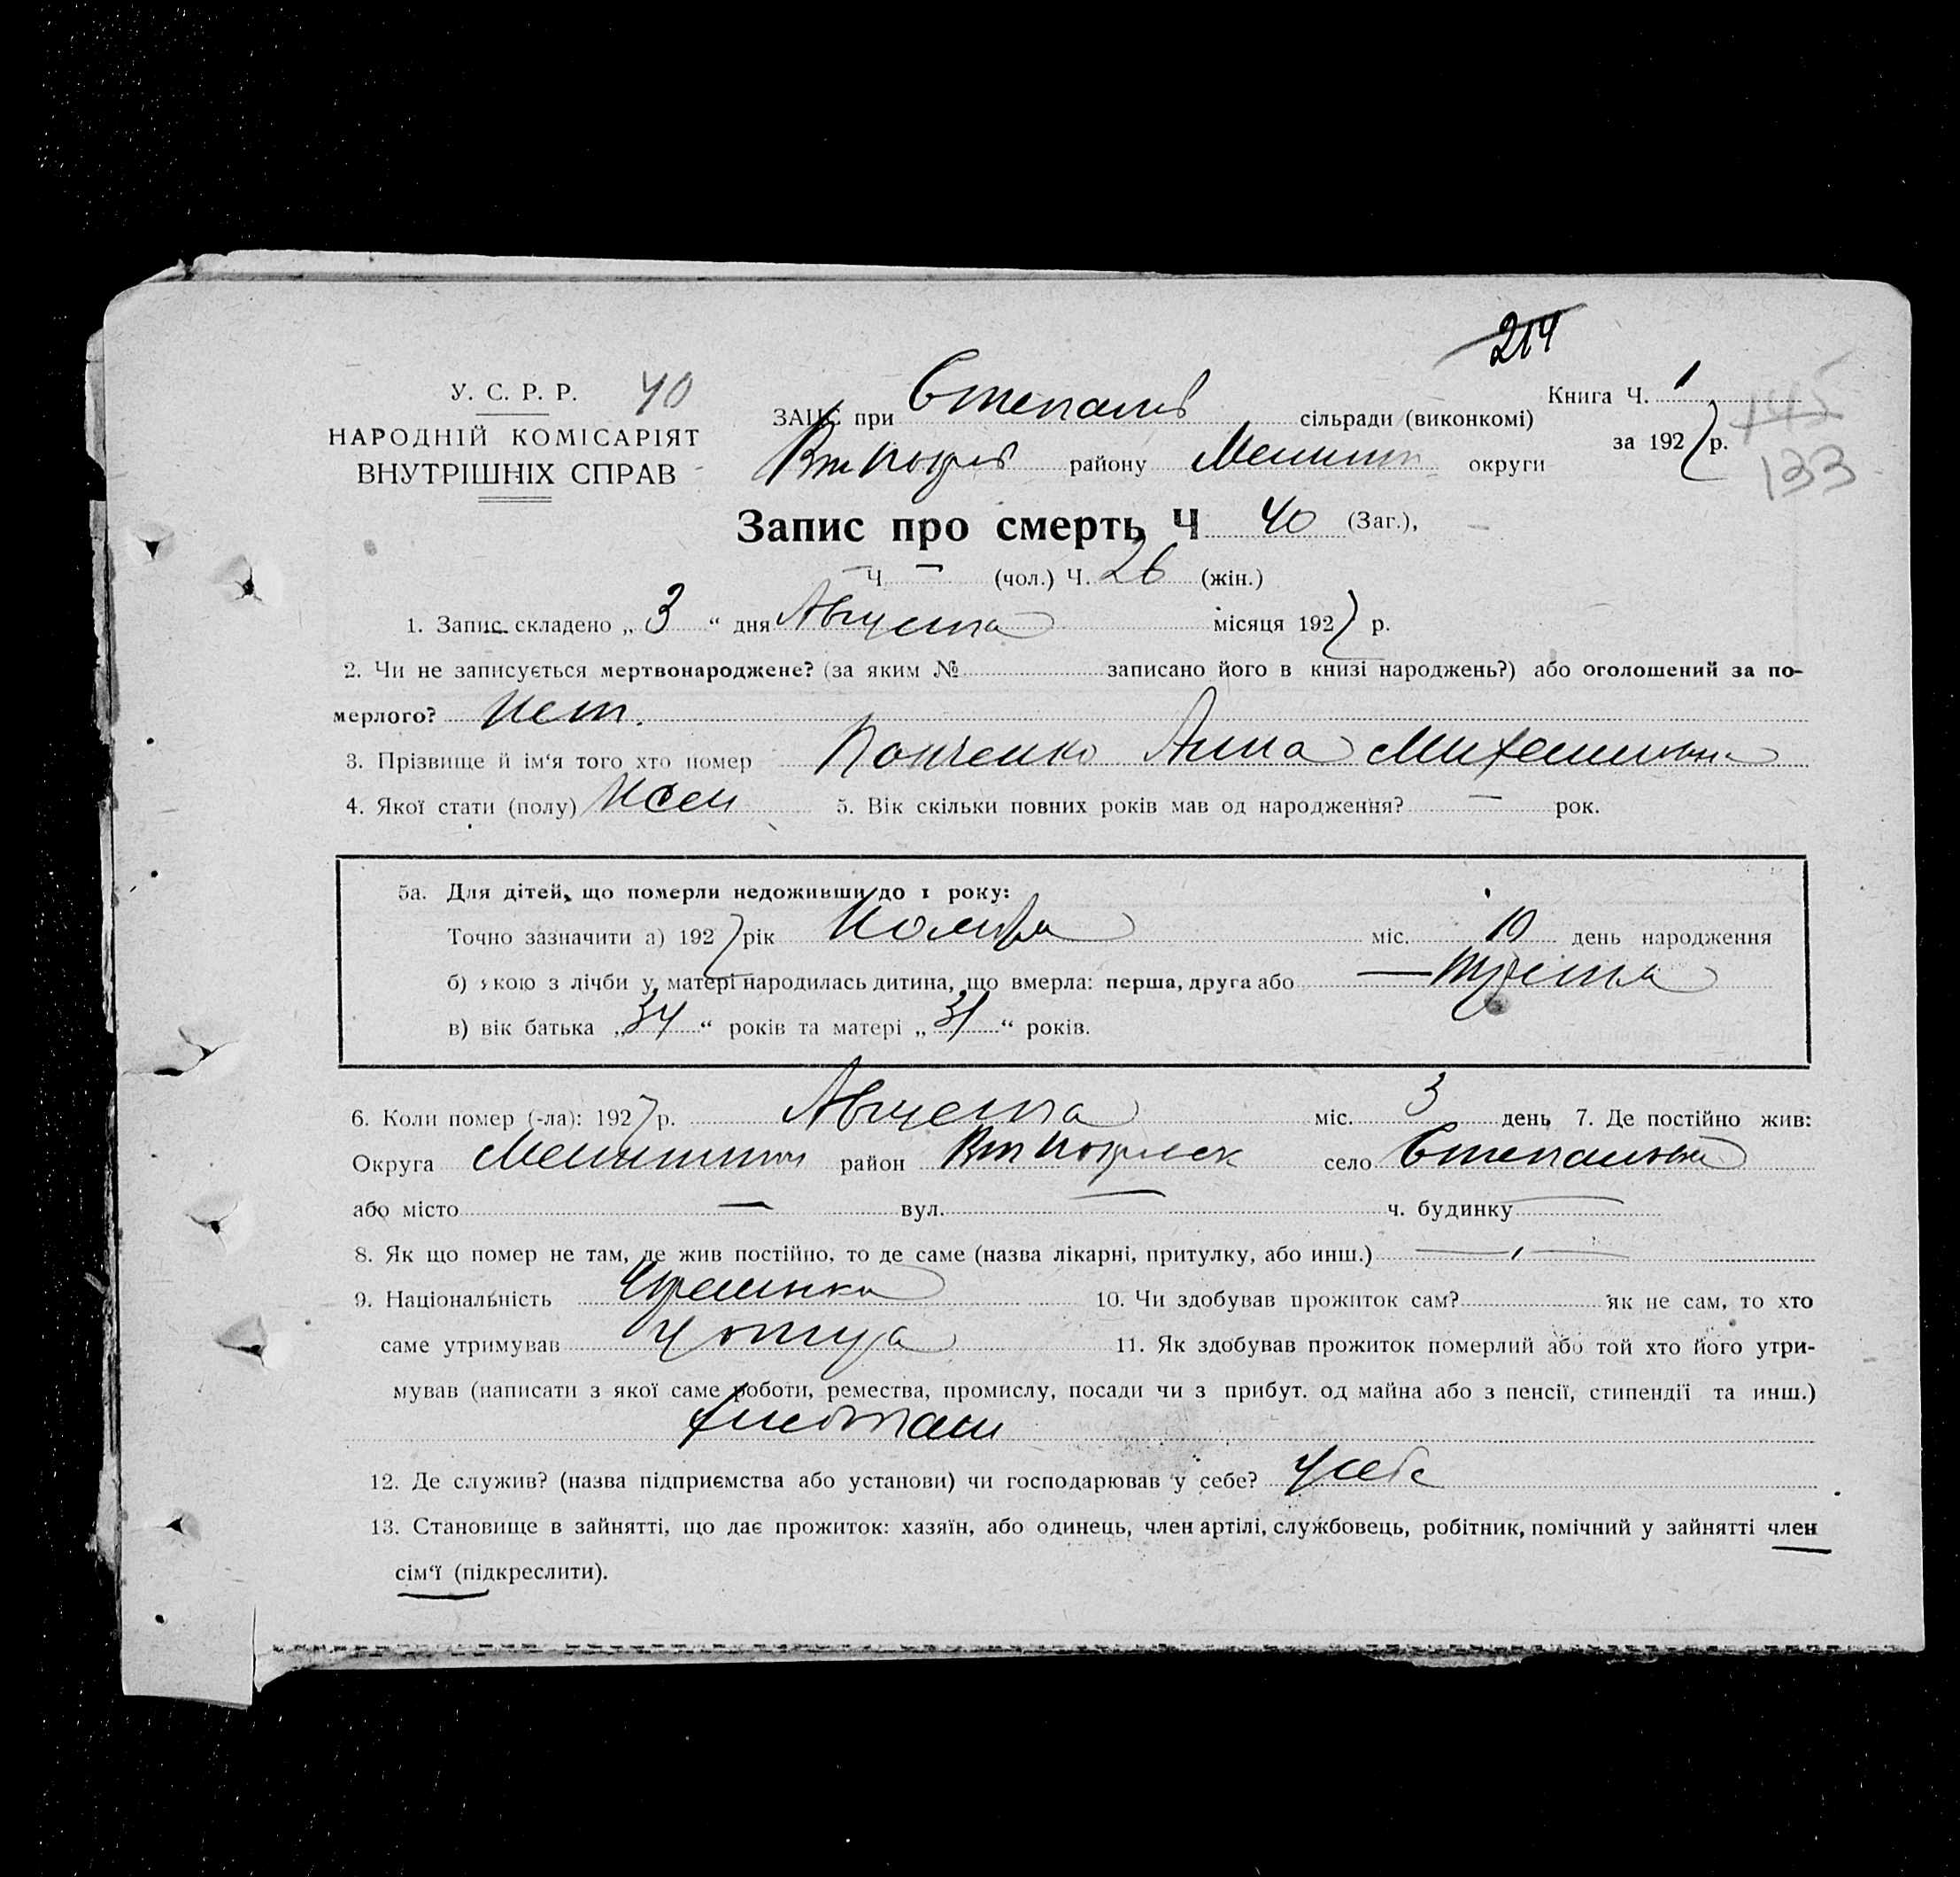 214
У. С. Р. Р. 40
НАРОДНІЙ КОМІСАРІЯТ
ВНУТРІШНІХ СПРАВ
ЗАЦС при Степанів сільради (виконкомі)
району округи
Книга Ч. 1
за 1927 р.
145
133
Запис про смерть Ч 40 (Заг.),
Ч — (чол.) Ч. 26 (жін.)
1. Запис складено „ 3 “ дня Августа місяця 1927 р.
2. Чи не записується мертвонароджене? (за яким № записано його в книзі народжень?) або оголошений за по-
мерлого? Нет.
3. Прізвище й ім‘я того хто помер Панченко Анна
4. Якої стати (полу) Жен 5. Вік скільки повних років мав од народження? — рок.
5а. Для дітей, що померли недоживши до 1 року:
Точно зазначити а) 1927 рік міс. 10 день народження
б) якою з лічби у матері народилась дитина, що вмерла: перша, друга або — третя
в) вік батька „ 34 “ років та матері „ 31 “ років.
6. Коли помер (-ла): 1927 р. Августа міс. 3 день 7. Де постійно жив:
Округа район село Степановка
або місто — вул. — ч. будинку —
8. Як що помер не там, де жив постійно, то де саме (назва лікарні, притулку, або инш.) —
9. Національність Украинка 10. Чи здобував прожиток сам? як не сам, то хто
саме утримував у отца 11. Як здобував прожиток померлий або той хто його утри-
мував (написати з якої саме роботи, ремества, промислу, посади чи з прибут. од майна або з пенсії, стипендії та инш.)
12. Де служив? (назва підприємства або установи) чи господарював у себе? у себе
13. Становище в зайнятті, що дає прожиток: хазяїн, або одинець, член артілі, службовець, робітник, помічний у зайнятті член
сім‘ї (підкреслити).